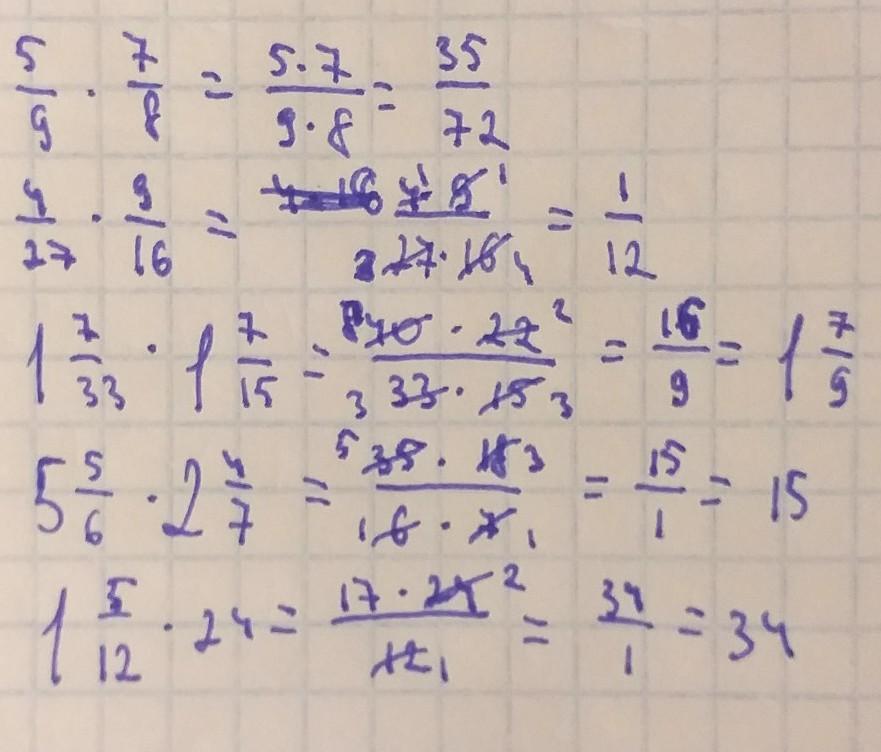 5/9 · 7/8 = 5·7/9·8 = 35/72
4/27 · 9/16 = 4¹ 9¹/₃27·16₄ = 1/12
1 7/33 · 1 7/15 = ⁸40 · 22²/₃33 · 15₃ = 16/9 = 1 7/9
5 5/6 · 2 4/7 = ⁵35 · 18³/₁6 · 7₁ = 15/1 = 15
1 5/12 · 24 = 17 · 24²/12₁ = 34/1 = 34